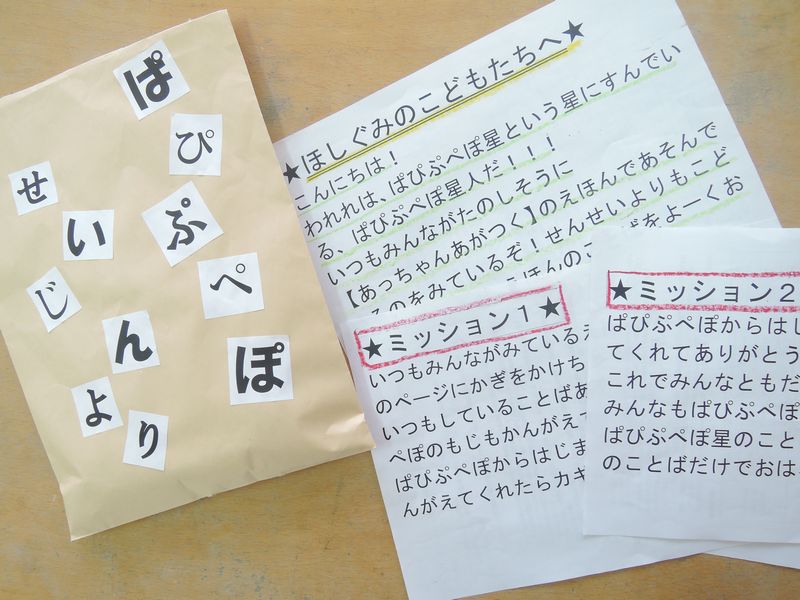 ぱぴぷぺぽ
せいじんより
★ほしぐみのこどもたちへ★
こんにちは!
われれは、ぱぴぷぺぽ星という星にすんでい
る、ぱぴぷぺぽ星人だ!!!
いつもみんながたのしそうに
【あっちゃんあがつく】のえほんであそんで
るのをみているぞ!せんせいよりもこど
をよーくお
★ミッション1★
いつもみんながみているえ
のページにかぎをかけち
いつもしていることばあ
ぺぽのもじもかんがえて
ぱぴぷぺぽからはじま
んがえてくれたらカギ
★ミッション2
ぱぴぷぺぽからはじ
てくれてありがとう
これでみんなともだ
みんなもぱぴぷぺぽ
ぱぴぷぺぽ星のこと
のことばだけでおは